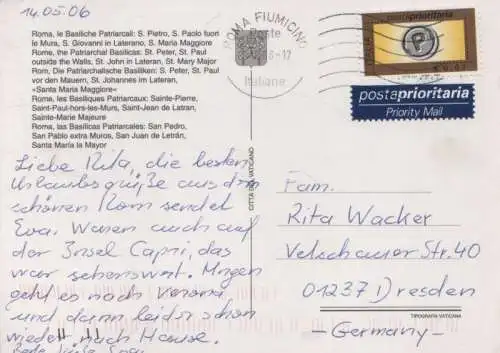 14.05.06
Roma, le Basiliche Patriarcali: S. Pietro, S. Paolo fuori
le Mura, S. Giovanni in Laterano, S. Maria Maggiore
Rome, the Patriarchal Basilicas: St. Peter, St. Paul
outside the Walls, St. John in Lateran, St. Mary Major
Rom, Die Patriarchalische Basiliken: St. Peter, St. Paul
vor den Mauern, St. Johannes im Lateran,
«Santa Maria Maggiore»
Roma, les Basiliques Patriarcaux: Sainte-Pierre,
Saint-Paul-hors-les-Murs, Saint-Jean de Latran,
Sainte-Marie Majeure
Roma, las Basílicas Patriarcales: San Pedro,
San Pablo extra Muros, San Juan de Letrán,
Santa María la Mayor
Liebe Rita, die besten
Urlaubsgrüße aus dem
schönen Rom sendet
Eva. Waren auch auf
der Insel Capri, das
war sehenswert. Morgen
geht es nach Verona
und dann leider schon
wieder nach Hause.
liebe
CITTÀ DEL VATICANO
ROMA FIUMICINO
Poste
-17
Italiane
postaprioritaria
P
postaprioritaria
Priority Mail
Fam.
Rita Wacker
Vetschauer Str. 40
01237 Dresden
-Germany-
TIPOGRAFIA VATICANA